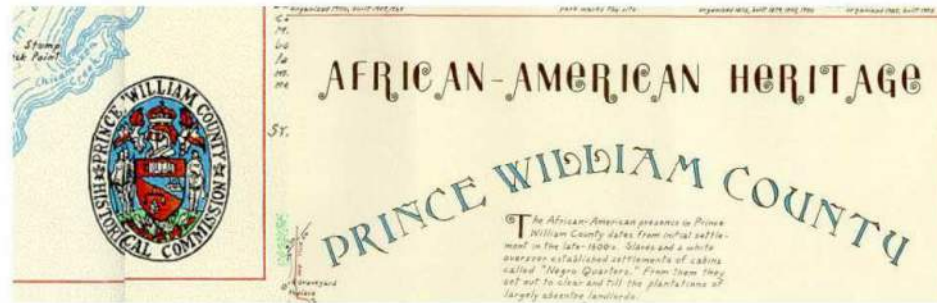 organized 1900, built 1909, 1969
park marks the site
Stump
ck Point
Chicamuxen
Creek
St.
PRINCE WILLIAM COUNTY
HISTORICAL COMMISSION
AFRICAN-AMERICAN HERITAGE
PRINCE WILLIAM COUNTY
The African-American presence in Prince
William County dates from initial settle-
ment in the late-1600s. Slaves and a white
overseer established settlements of cabins
called "Negro Quarters." From them they
set out to clear and till the plantations of
largely absentee landlords.
Graveyard